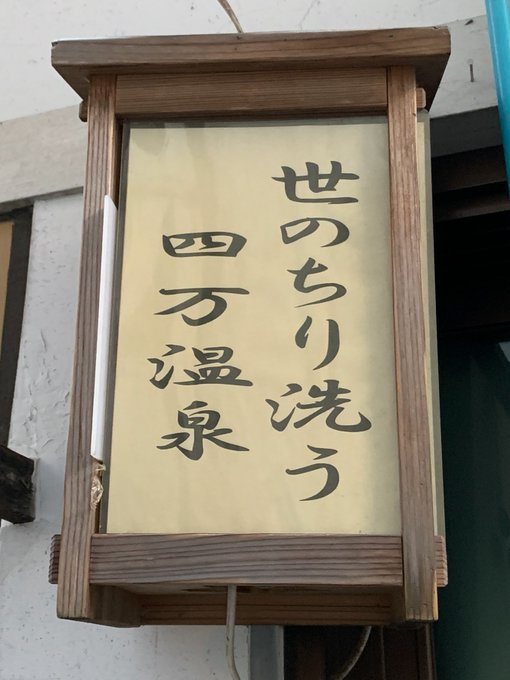 世のちり洗う
四万温泉